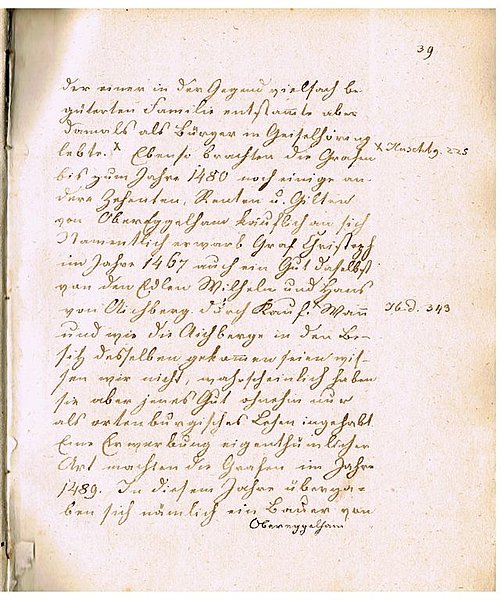 39
der einer in der Gegend vielfach be-
güterten Familie entstam̅te aber
damals als Bürger in Geiselhöring
lebte.x Ebenso brachten die Grafen
x Huschbg. 225
bis zum Jahre 1480 noch einige an-
dere Zehenten, Renten u. Gilten
von Obereggelham käuflich an sich
Namentlich erwarb Graf Christoph
im Jahre 1467 auch ein Gut daselbst
von den Edlen Wilhelm und Hans
von Aichberg durch Kauf.x Wan̅
Ibid. 343
und wie die Aichberge in den Be-
sitz desselben gekom̅en seien wis-
sen wir nicht, wahrscheinlich haben
sie aber jenes Gut ohnehin nur
als ortenburgisches Lehen ingehabt
Eine Erwerbung eigenthümlicher
Art machten die Grafen im Jahre
1489. In diesem Jahre überga-
ben sich nämlich ein Bauer von
Obereggelham